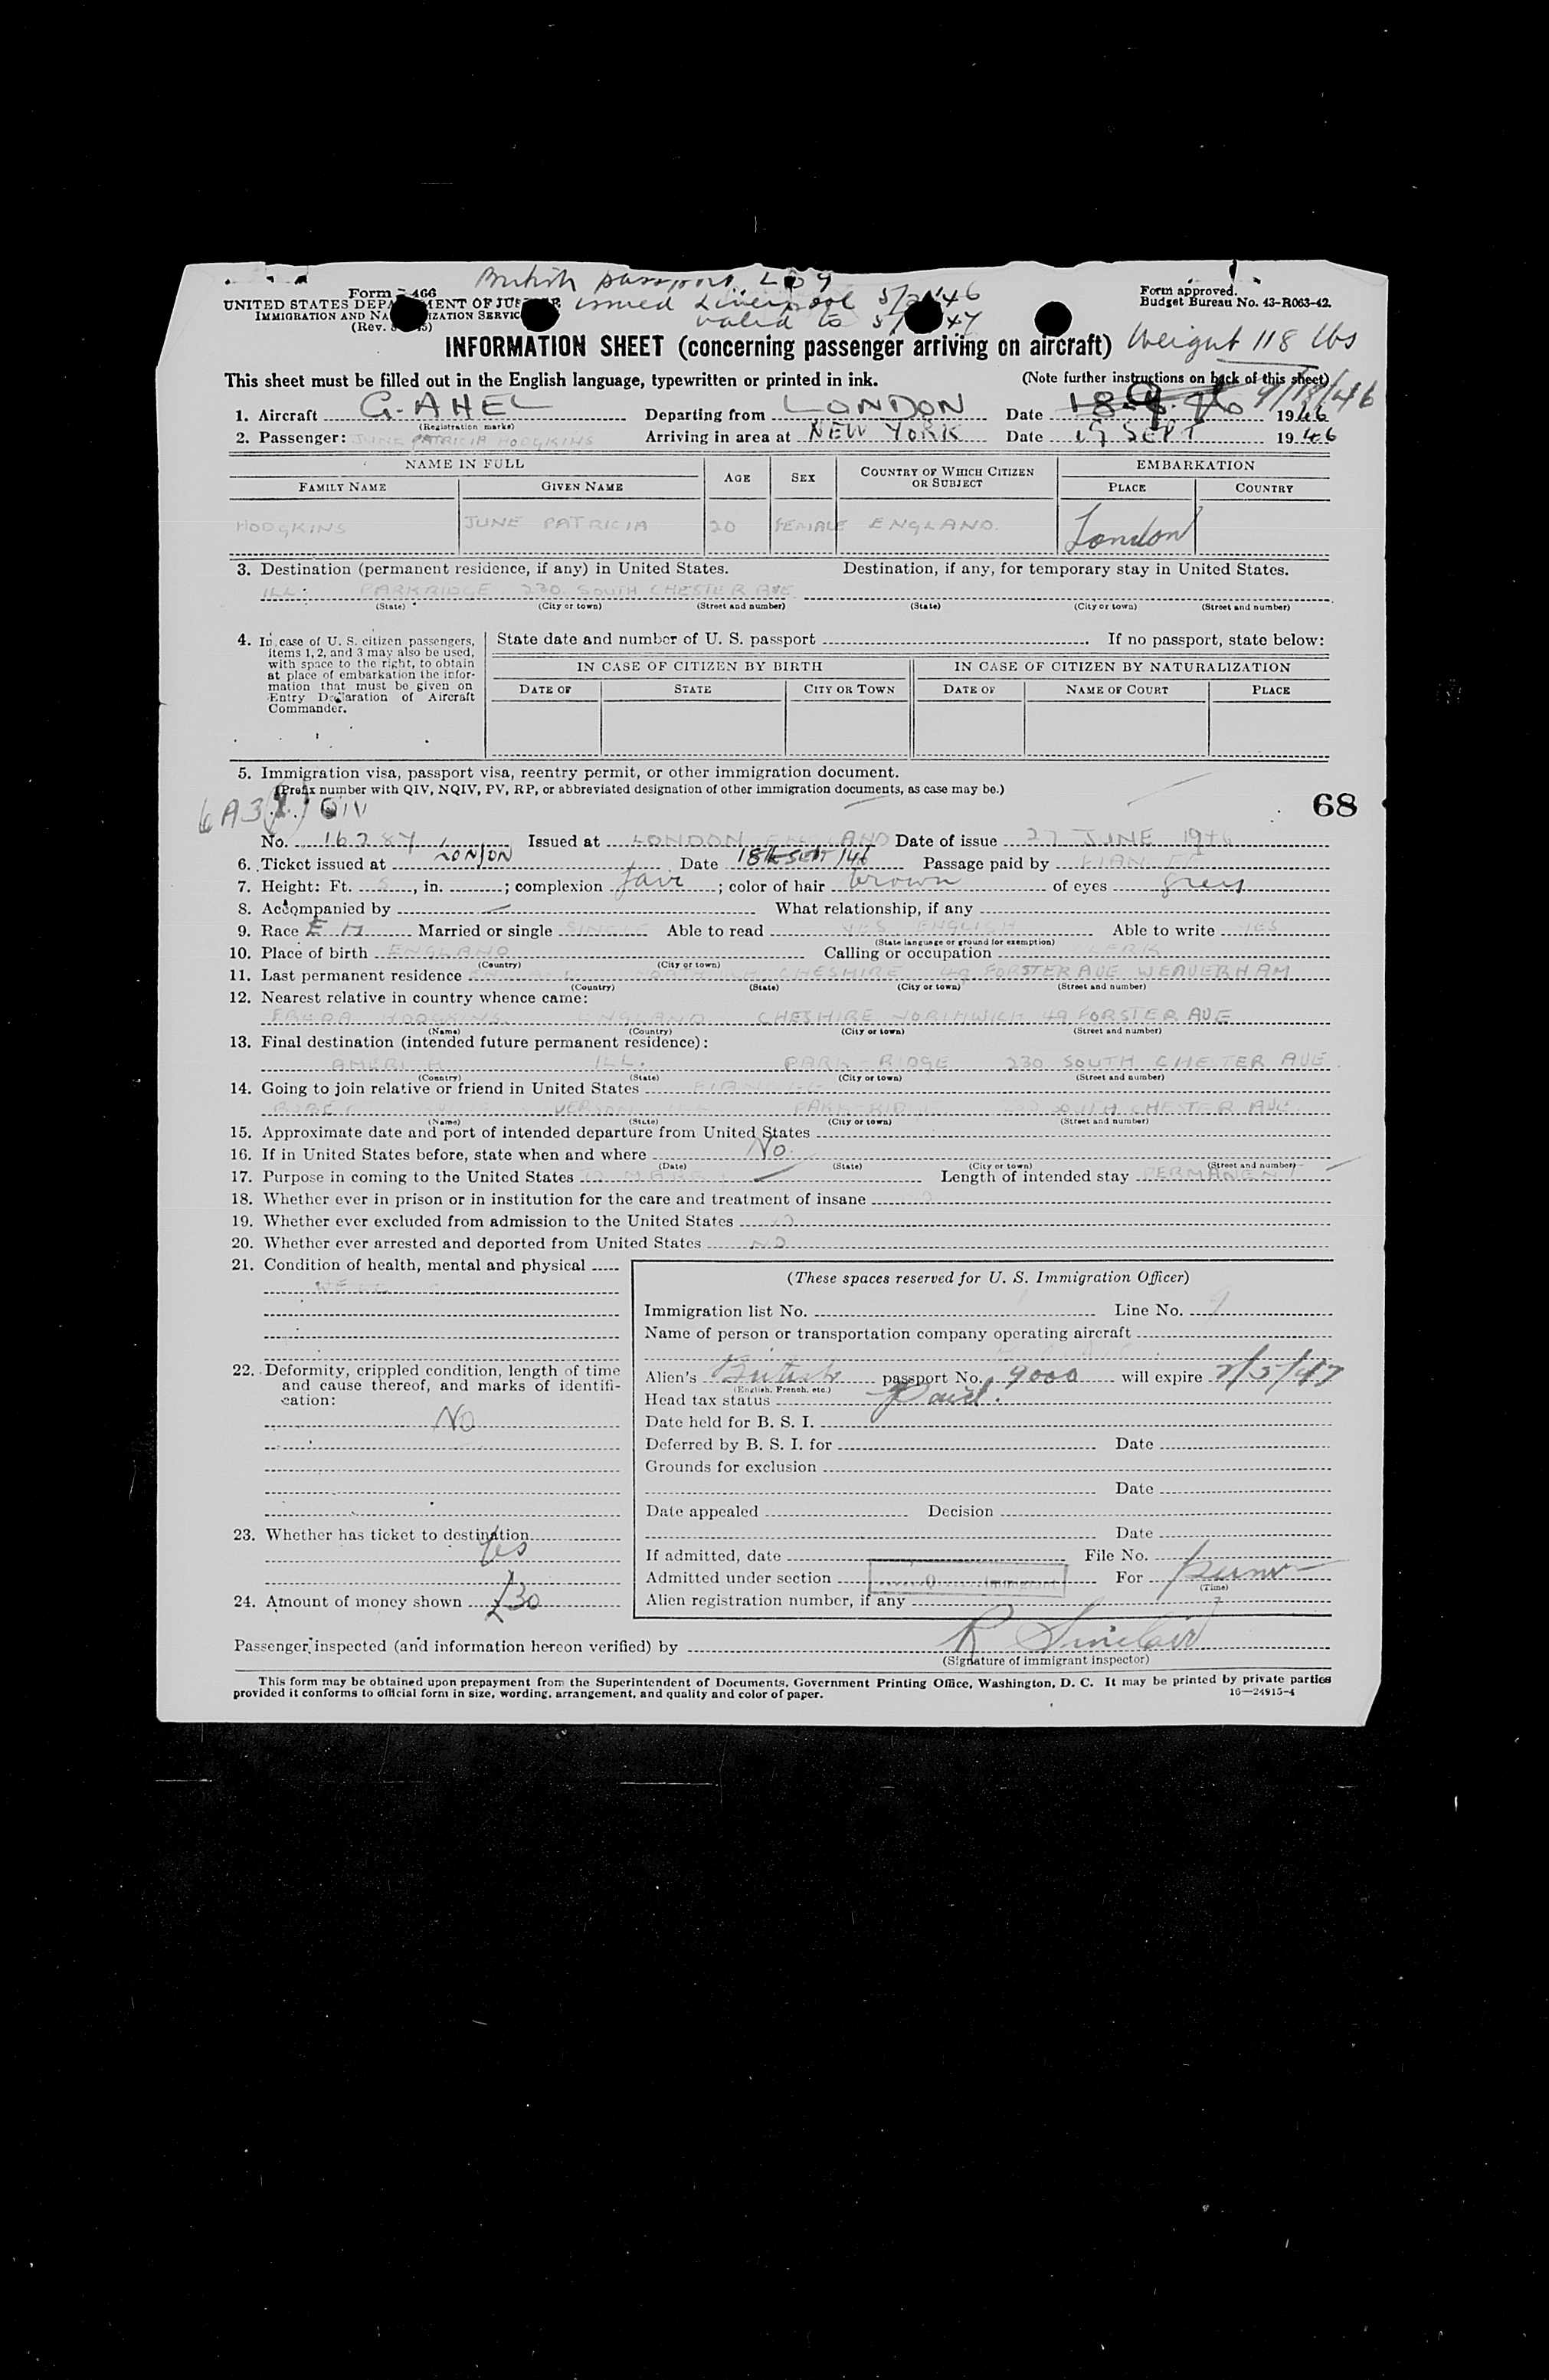 British passport
issued Liverpool
valid to
Form 466
UNITED STATES DEPARTMENT OF JUSTICE
IMMIGRATION AND NATURALIZATION SERVICE
(Rev.
Form approved.
Budget Bureau No. 43-R063-42.
INFORMATION SHEET (concerning passenger arriving on aircraft) Weight 118 lbs
This sheet must be filled out in the English language, typewritten or printed in ink. (Note further instructions on back of this sheet)
9/18/46
1. Aircraft G-AHEL Departing from LONDON Date 18-9-46 1946
(Registration marks)
2. Passenger: JUNE PATRICIA HODGKINS Arriving in area at NEW YORK Date 19 SEPT 1946
NAME IN FULL AGE SEX COUNTRY OF WHICH CITIZEN OR SUBJECT EMBARKATION
FAMILY NAME GIVEN NAME PLACE COUNTRY
HODGKINS JUNE PATRICIA 20 FEMALE ENGLAND. London
3. Destination (permanent residence, if any) in United States. Destination, if any, for temporary stay in United States.
ILL: PARKRIDGE 230 SOUTH CHESTER AVE
(State) (City or town) (Street and number) (State) (City or town) (Street and number)
4. In case of U. S. citizen passengers, items 1, 2, and 3 may also be used, with space to the right, to obtain at place of embarkation the information that must be given on Entry Declaration of Aircraft Commander.
State date and number of U. S. passport If no passport, state below:
IN CASE OF CITIZEN BY BIRTH IN CASE OF CITIZEN BY NATURALIZATION
DATE OF STATE CITY OR TOWN DATE OF NAME OF COURT PLACE
5. Immigration visa, passport visa, reentry permit, or other immigration document.
(Prefix number with QIV, NQIV, PV, RP, or abbreviated designation of other immigration documents, as case may be.)
6A3(1) QIV
68
No. 16287 Issued at LONDON ENGLAND Date of issue 27 JUNE 1946
6. Ticket issued at LONDON Date 18th SEPT /46 Passage paid by FIANCE
7. Height: Ft. 5, in. ; complexion fair ; color of hair brown of eyes grey
8. Accompanied by — What relationship, if any
9. Race Married or single SINGLE Able to read YES ENGLISH Able to write YES
(State language or ground for exemption)
10. Place of birth ENGLAND Calling or occupation CLERK
(Country) (City or town)
11. Last permanent residence ENGLAND NORTHWICH CHESHIRE 49 FORSTER AVE WEAVERHAM
(Country) (State) (City or town) (Street and number)
12. Nearest relative in country whence came:
HODGKINS ENGLAND CHESHIRE NORTHWICH 49 FORSTER AVE
(Name) (Country) (City or town) (Street and number)
13. Final destination (intended future permanent residence):
AMERICA ILL. PARK-RIDGE 230 SOUTH CHESTER AVE
(Country) (State) (City or town) (Street and number)
14. Going to join relative or friend in United States FIANCE
PARK-RIDGE 230 SOUTH CHESTER AVE.
(Name) (State) (City or town) (Street and number)
15. Approximate date and port of intended departure from United States
16. If in United States before, state when and where NO
(Date) (State) (City or town) (Street and number)
17. Purpose in coming to the United States TO MARRY Length of intended stay PERMANENT
18. Whether ever in prison or in institution for the care and treatment of insane
19. Whether ever excluded from admission to the United States NO
20. Whether ever arrested and deported from United States NO
21. Condition of health, mental and physical
(These spaces reserved for U. S. Immigration Officer)
Immigration list No. Line No. 9
Name of person or transportation company operating aircraft
22. Deformity, crippled condition, length of time and cause thereof, and marks of identification:
NO
Alien's British passport No. 9000 will expire
(English, French, etc.)
Head tax status Paid.
Date held for B. S. I.
Deferred by B. S. I. for Date
Grounds for exclusion
Date
Date appealed Decision
Date
23. Whether has ticket to destination
Yes
If admitted, date File No.
Admitted under section immigrant For perm
(Time)
24. Amount of money shown £30
Alien registration number, if any
Passenger inspected (and information hereon verified) by R Sinclair
(Signature of immigrant inspector)
This form may be obtained upon prepayment from the Superintendent of Documents, Government Printing Office, Washington, D. C. It may be printed by private parties
provided it conforms to official form in size, wording, arrangement, and quality and color of paper. 16—24915-4